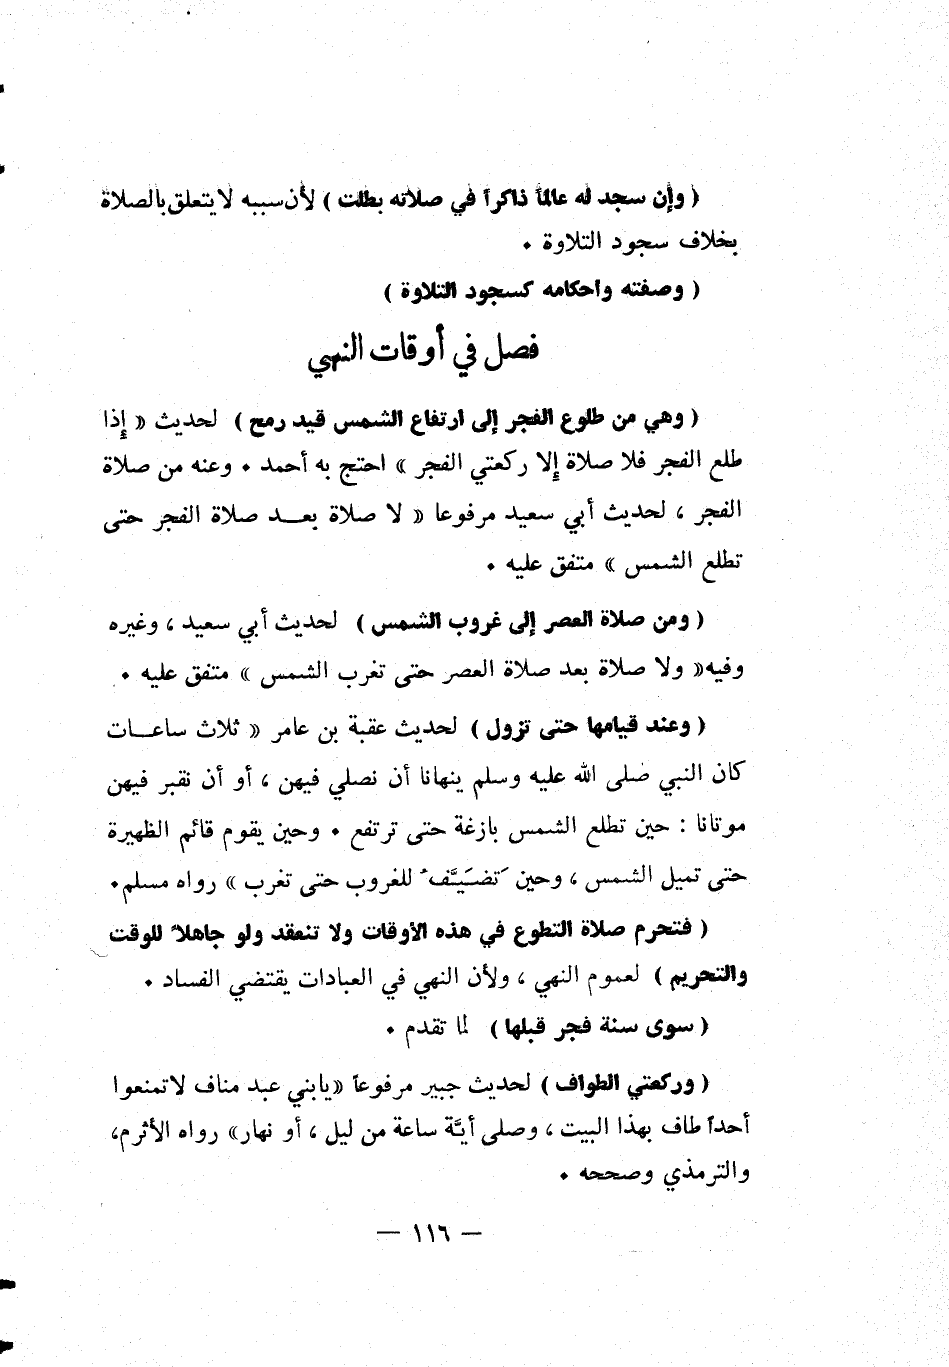 ( وإن سجد له عالماً ذاكراً في صلاته بطلت ) لأن سببه لا يتعلق بالصلاة
بخلاف سجود التلاوة .
( وصفته واحكامه كسجود التلاوة )
فصل في أوقات النهي
( وهي من طلوع الفجر إلى ارتفاع الشمس قيد رمح ) لحديث « إذا
طلع الفجر فلا صلاة إلا ركعتي الفجر » احتج به أحمد . وعنه من صلاة
الفجر ، لحديث أبي سعيد مرفوعا « لا صلاة بعـد صلاة الفجر حتى
تطلع الشمس » متفق عليه .
( ومن صلاة العصر إلى غروب الشمس ) لحديث أبي سعيد ، وغيره
وفيه « ولا صلاة بعد صلاة العصر حتى تغرب الشمس » متفق عليه .
( وعند قيامها حتى تزول ) لحديث عقبة بن عامر « ثلاث ساعـات
كان النبي صلى الله عليه وسلم ينهانا أن نصلي فيهن ، أو أن نقبر فيهن
موتانا : حين تطلع الشمس بازغة حتى ترتفع . وحين يقوم قائم الظهيرة
حتى تميل الشمس ، وحين تَضَيَّفُ للغروب حتى تغرب » رواه مسلم .
( فتحرم صلاة التطوع في هذه الأوقات ولا تنعقد ولو جاهلاً للوقت
والتحريم ) لعموم النهي ، ولأن النهي في العبادات يقتضي الفساد .
( سوى سنة فجر قبلها ) لما تقدم .
( وركعتي الطواف ) لحديث جبير مرفوعاً «يابني عبد مناف لاتمنعوا
أحداً طاف بهذا البيت ، وصلى أيَّة ساعة من ليل ، أو نهار» رواه الأثرم،
والترمذي وصححه .
— ١١٦ —